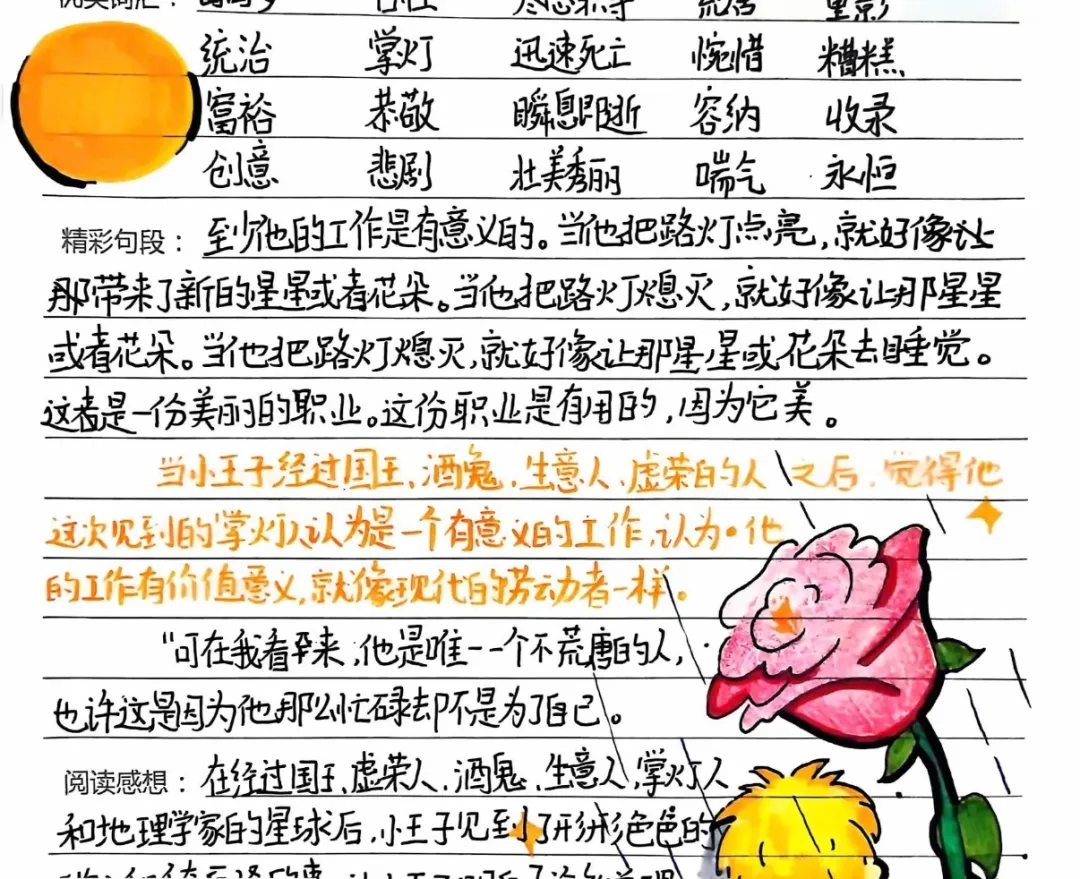 优美词汇：
统治 掌灯 迅速死亡 惋惜 糟糕
富裕 恭敬 瞬息即逝 容纳 收录
创意 悲剧 壮美秀丽 喘气 永恒
精彩句段：至少他的工作是有意义的。当他把路灯点亮，就好像让
那带来了新的星星或者花朵。当他把路灯熄灭，就好像让那星星
或者花朵。当他把路灯熄灭，就好像让那星星或花朵去睡觉。
这者是一份美丽的职业。这份职业是有用的，因为它美。
当小王子经过国王、酒鬼、生意人、虚荣的人之后，觉得他
这次见到的掌灯人认为是一个有意义的工作，认为他
的工作有价值意义，就像现代的劳动者一样。
“可在我看平来，他是唯一一个不荒唐的人，
也许这是因为他那么忙碌却不是为了自己。
阅读感想：在经过国王、虚荣人、酒鬼、生意人、掌灯人
和地理学家的星球后，小王子见到了形形色色的